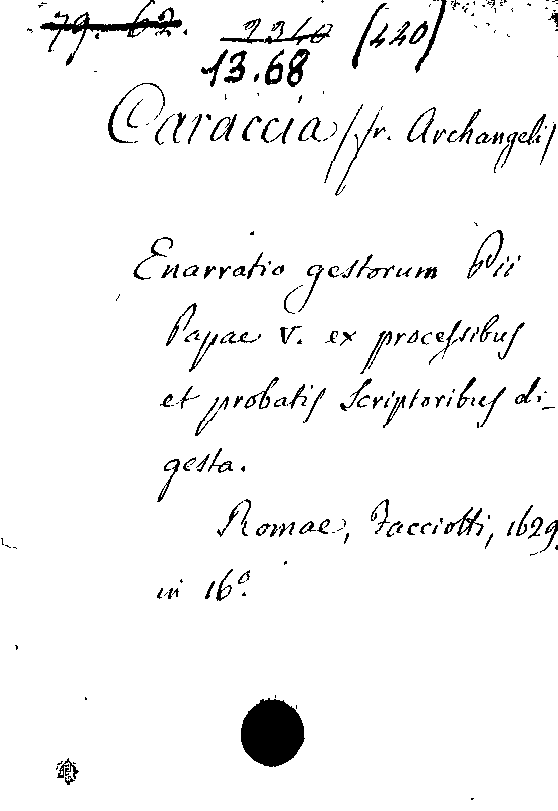 79. 62. 2340 (220)
13.68
Caraccia (fr. Archangelis)
Enarratio gestorum Pii
Papae V. ex processibus
et probatis Scriptoribus di-
gesta.
Romae, Facciotti, 1629.
in 16º.